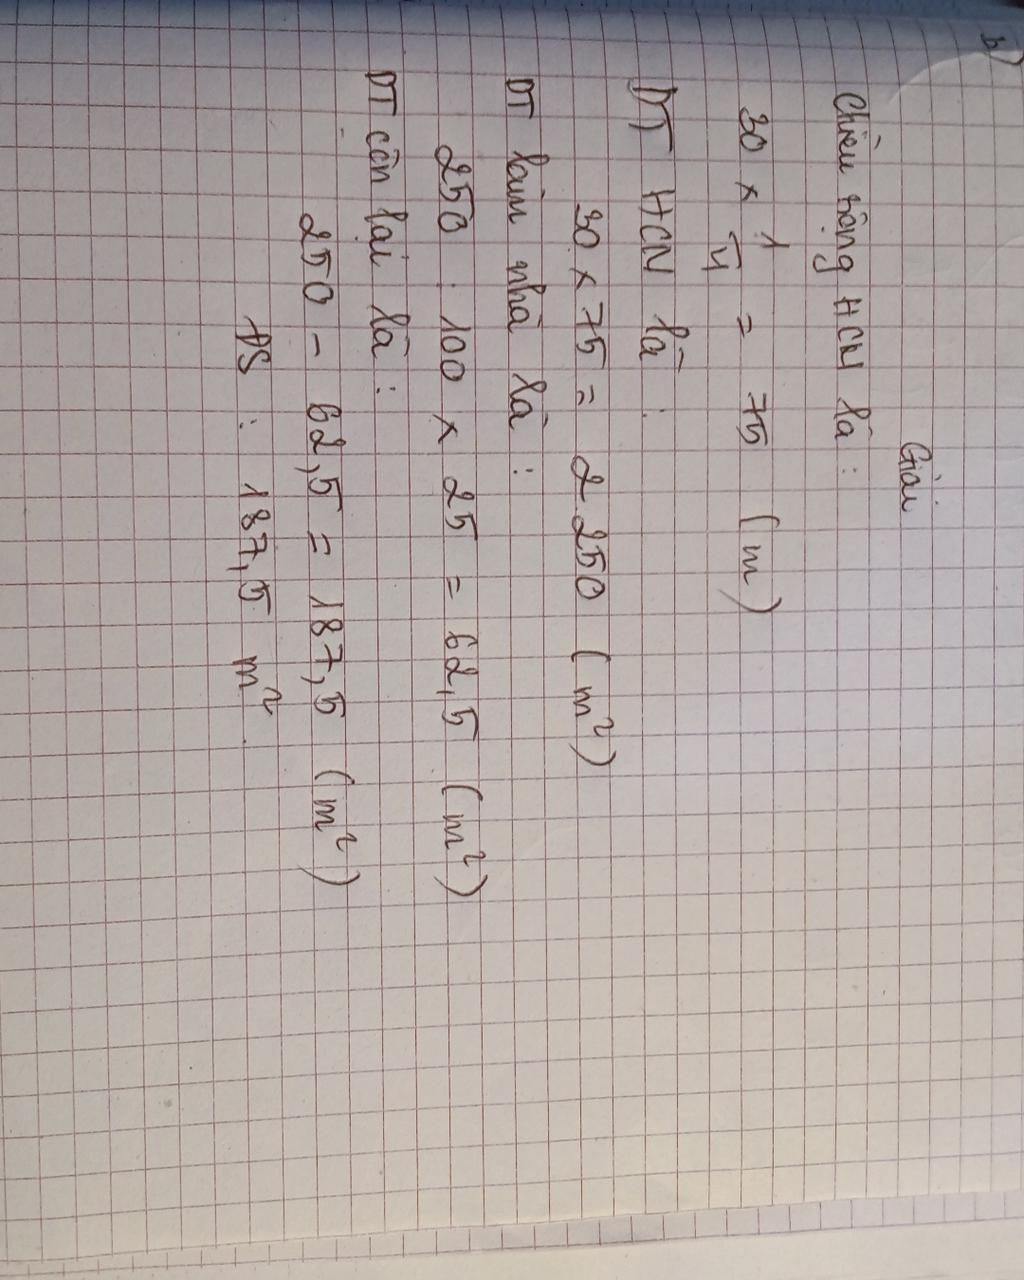 b)
Giải
Chiều rộng HCN là :
30 × 1/4 = 75 (m)
DT HCN là :
30 × 75 = 2 250 (m²)
DT làm nhà là :
250 : 100 × 25 = 62,5 (m²)
DT còn lại là :
250 - 62,5 = 187,5 (m²)
ĐS : 187,5 m²